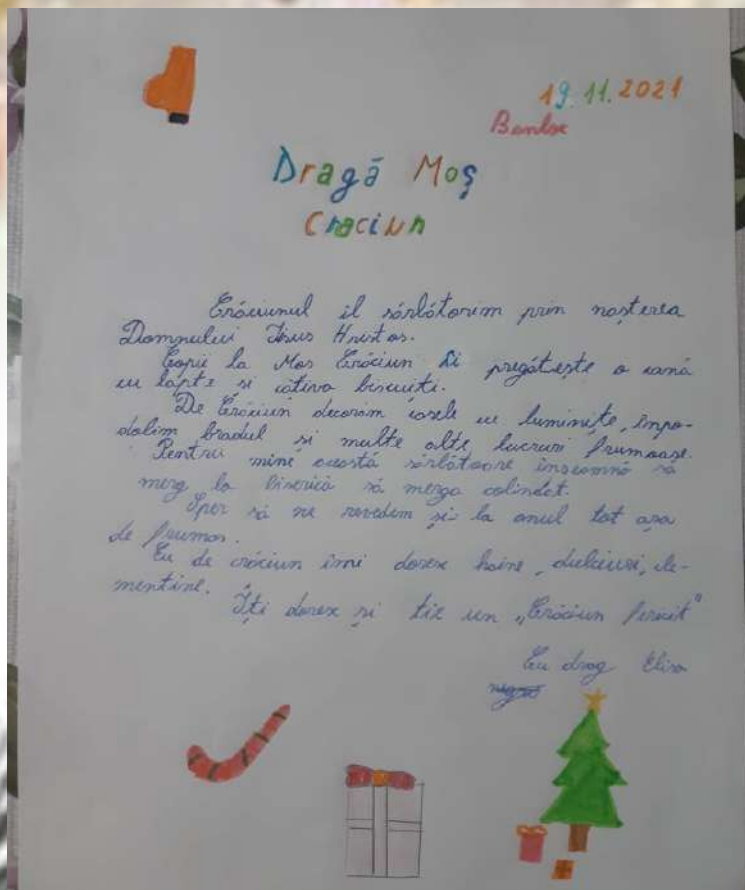 19.11.2021
Banloc
Dragă Moș
Craciun
Crăciunul il sărbătorim prin nașterea
Domnului Isus Hristos.
Copii la Mos Crăciun îi pregătește o cană
cu lapte și cațiva biscuiți.
De Crăciun decorăm casele cu luminițe, împo-
dobim bradul si multe alte lucruri frumoase.
Pentru mine această sărbătoare înseamnă să
merg la biserică să merg la colindat.
Sper să ne revedem și la anul tot așa
de frumos.
Eu de crăciun îmi doresc haine, dulciuri, cle-
mentine.
Îți doresc și ție un „Crăciun fericit"
Cu drag Eliza